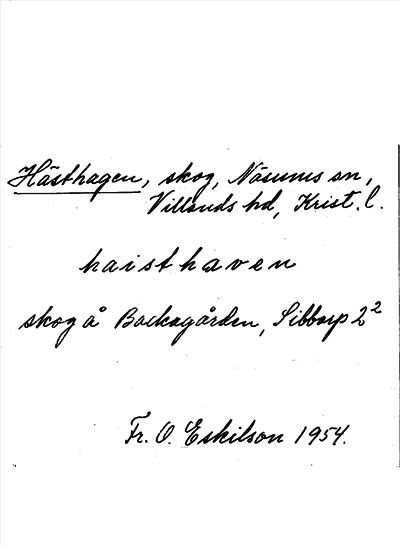 Hästhagen, skog, Näsums sn,
Villands hd, Krist. l.
haisthaven
skog å Backagården, Sibborp 2²
Fr. O. Eskilson 1954.